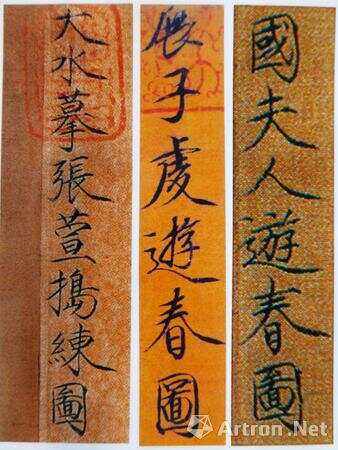 國夫人遊春圖
展子虔遊春圖
天水摹張萱搗練圖
Artron.Net